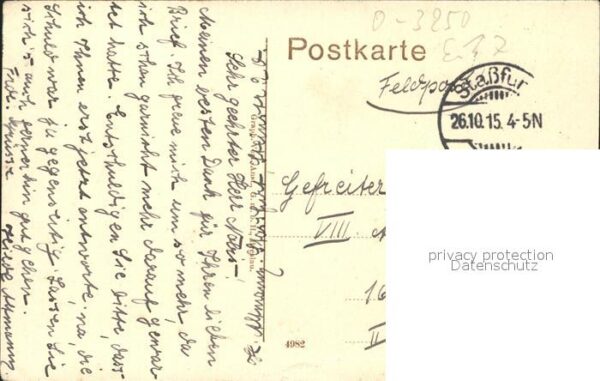 O-3250
E. 17
Postkarte
Feldpost
Staßfurt
26.10.15. 4-5N
Gefreiter
VIII.
16
II
privacy protection
Datenschutz
4982
Sehr geehrter Herr
Meinen besten Dank für Ihren lieben
Brief. Ich freue mich um so mehr, da
ich schon garnicht mehr darauf gewar-
tet hatte. Entschuldigen Sie bitte, dass
ich Ihnen erst jetzt antworte, na, die
Schuld war ja gegenseitig. Lassen Sie
sich's auch fernerhin gut gehen.
Frdl. Grüsse